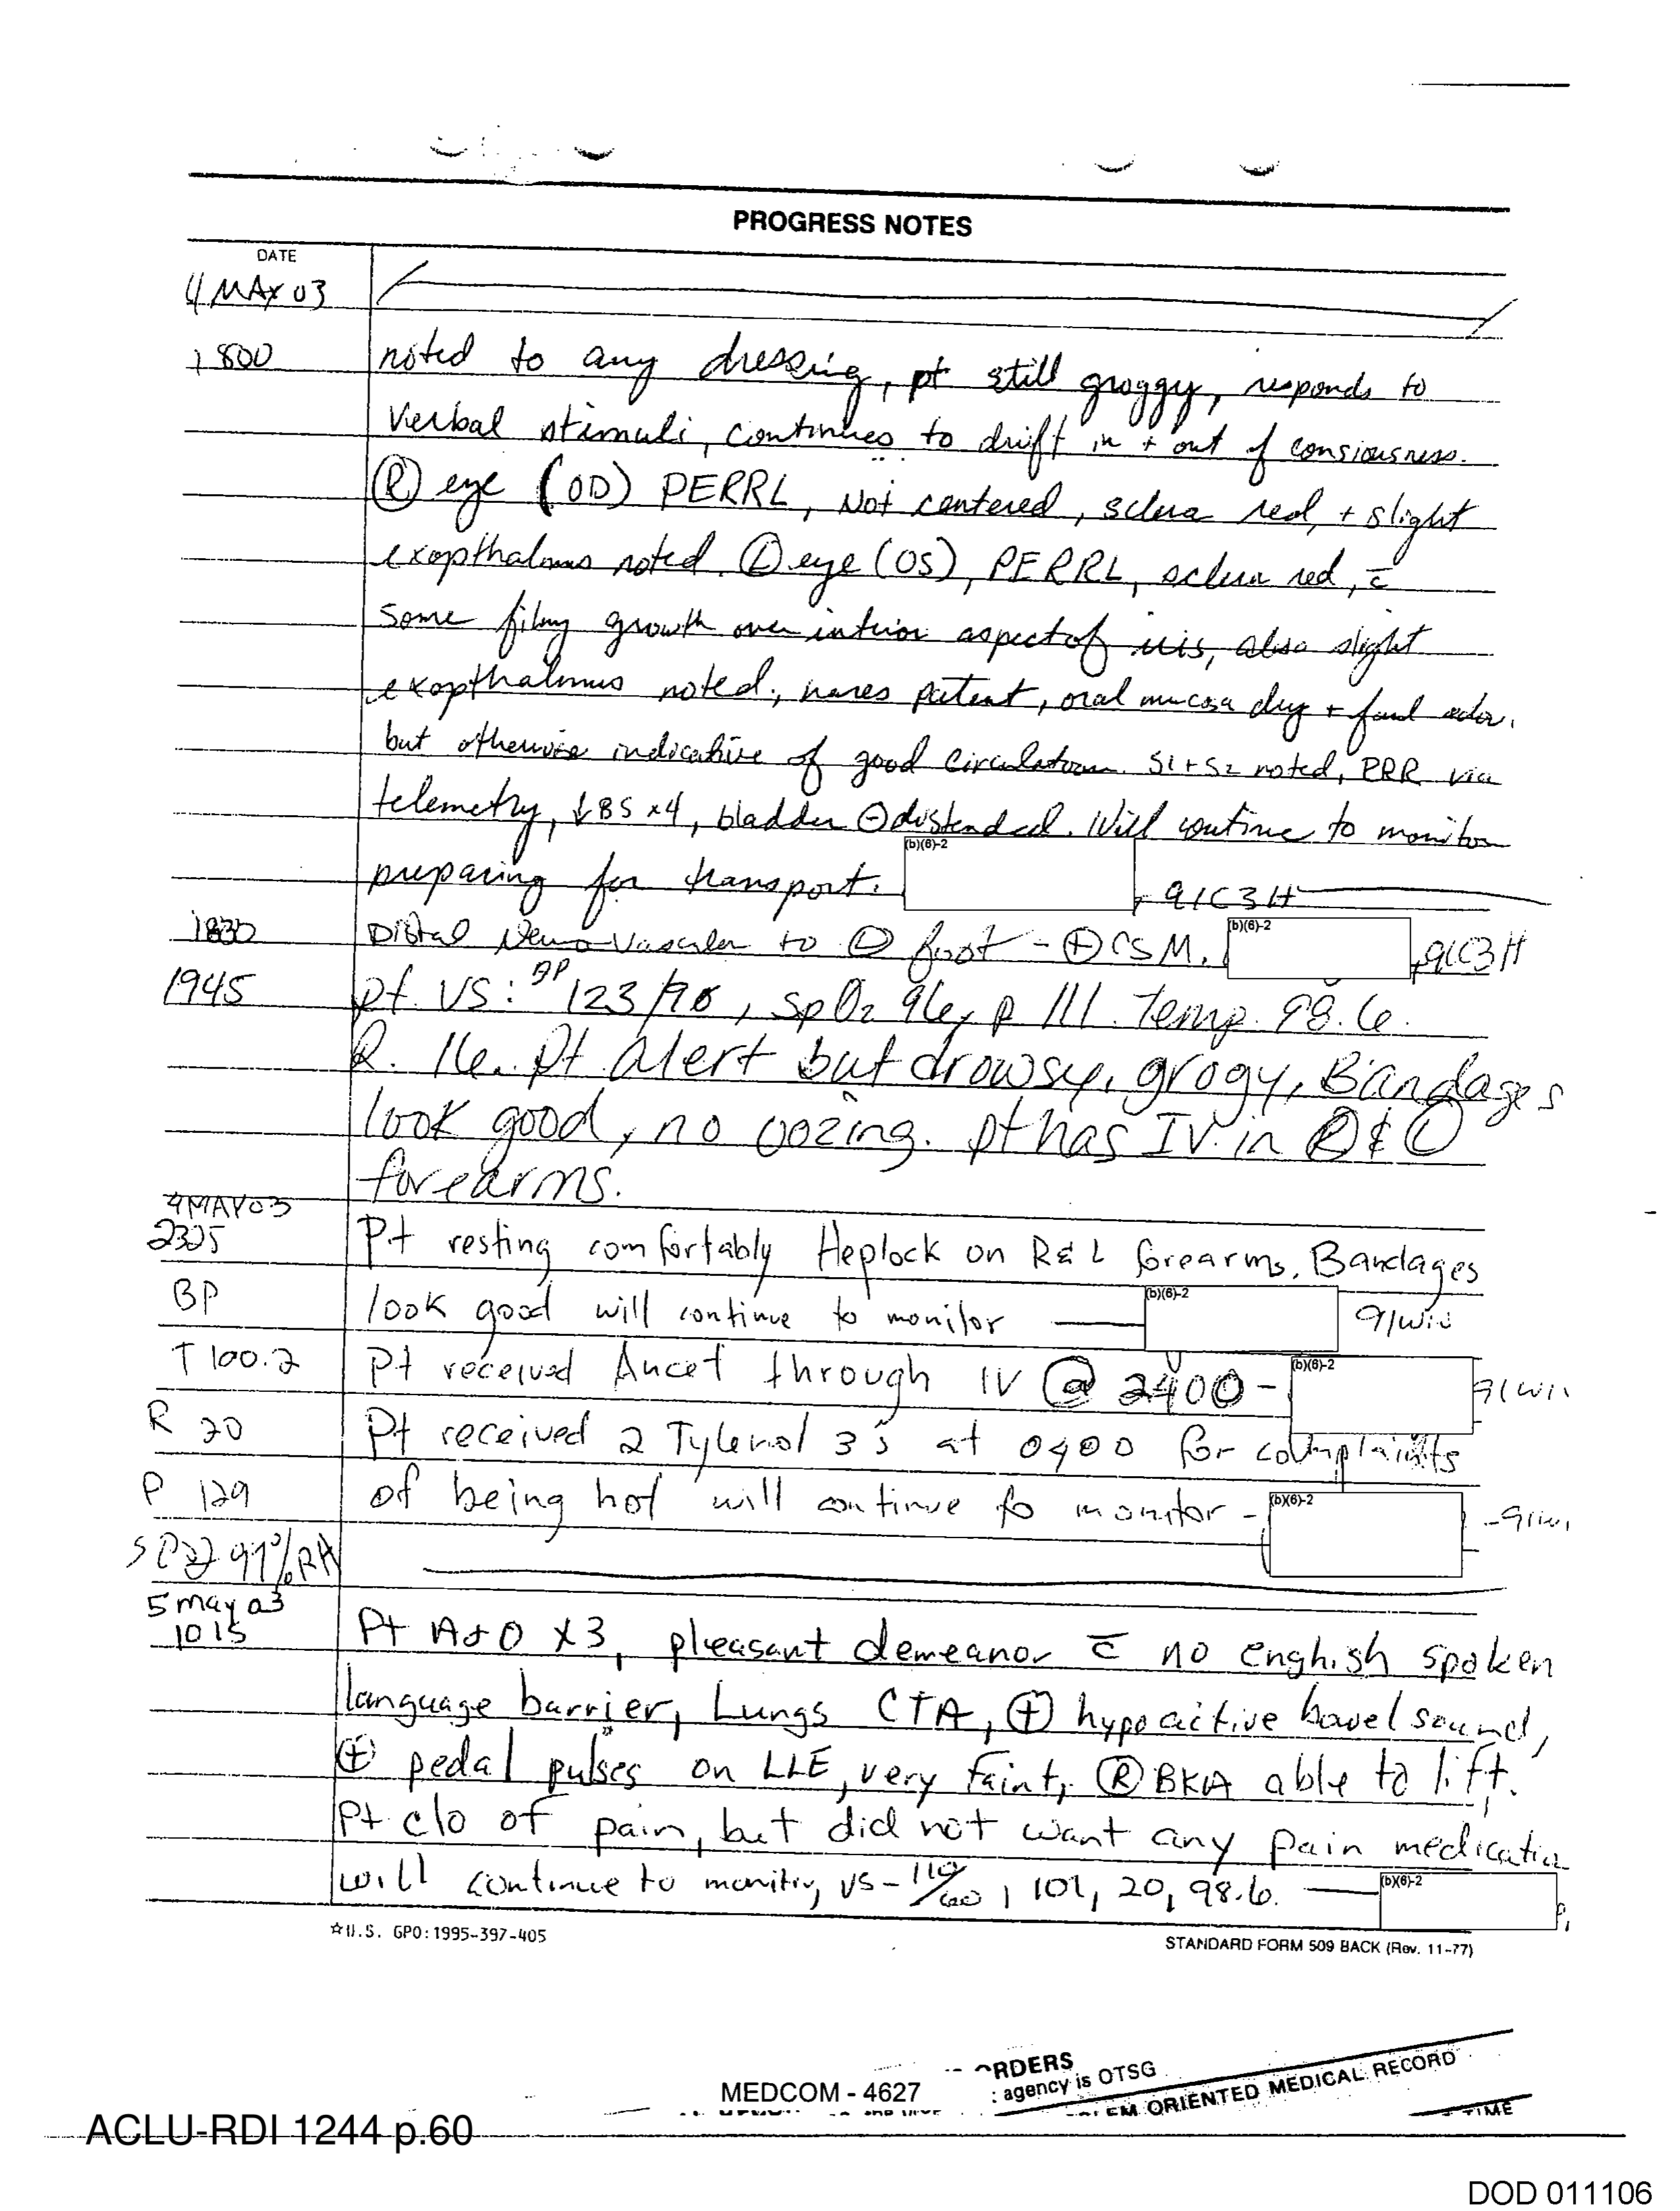 PROGRESS NOTES
DATE
4 MAY 03
1800 noted to any dressing, pt still groggy, responds to
verbal stimuli, continues to drift in + out of consiousness.
Ⓡ eye (OD) PERRL, Not centered, sclera red, + slight
exopthalmus noted. Ⓛ eye (OS), PERRL, sclera red, c̄
some filmy growth over interior aspect of iris, also slight
exopthalmus noted, nares patent, oral mucosa dry + foul odor.
but otherwise indicative of good circulation. S1 + S2 noted, RRR via
telemetry, ↓BS x4, bladder ⊖ distended. Will continue to monitor
preparing for transport. (b)(6)-2 , 91C3H
1830 Distal Neuro Vascular to Ⓛ foot - ⊕ CSM. (b)(6)-2 , 91C3H
1945 pt. VS: BP 123/76, SpO2 96, p 111. Temp. 98.6.
R. 16. Pt alert but drowsy, grogy, Bandages
look good, no oozing. pt has IV in Ⓡ & Ⓛ
forearms.
4 MAY 03
2325 Pt resting comfortably Heplock on R & L forearms. Bandages
BP look good will continue to monitor (b)(6)-2 91W
T 100.2 Pt received Ancef through IV @ 2400 - (b)(6)-2 91W
R 20 Pt received 2 Tylenol 3's at 0400 for complaints
P 129 of being hot will continue to monitor - (b)(6)-2 - 91W
SPO2 97% RA
5 may 03
1015 Pt A&O x3, pleasant demeanor c̄ no enghish spoken
language barrier, Lungs CTA, ⊕ hypoactive bowel sound,
⊕ pedal pulses on LLE, very faint, Ⓡ BKA able to lift.
Pt c/o of pain, but did not want any pain medicatio
will continue to monitor, VS - 110/60, 101, 20, 98.6. (b)(6)-2
☆U.S. GPO:1995-397-405
STANDARD FORM 509 BACK (Rev. 11-77)
ORDERS
: agency is OTSG
MEDCOM - 4627
ORIENTED MEDICAL RECORD
TIME
ACLU-RDI 1244 p.60
DOD 011106